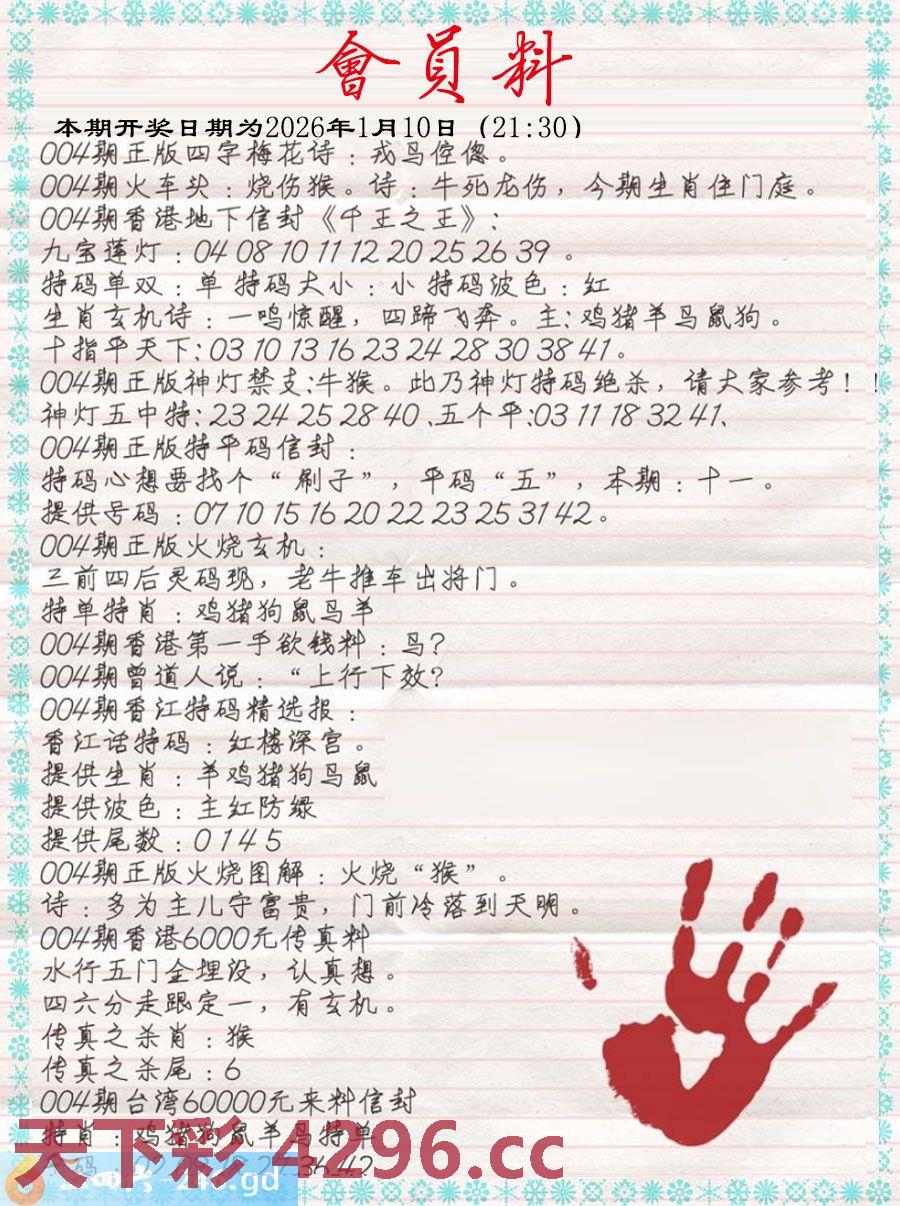 會員料
本期开奖日期为2026年1月10日（21:30）
004期正版四字梅花诗：戎马倥偬。
004期火车头：烧伤猴。诗：牛死龙伤，今期生肖住门庭。
004期香港地下信封《千王之王》：
九宝莲灯：04 08 10 11 12 20 25 26 39 。
特码单双：单 特码大小：小 特码波色：红
生肖玄机诗：一鸣惊醒，四蹄飞奔。主：鸡猪羊马鼠狗。
十指平天下：03 10 13 16 23 24 28 30 38 41。
004期正版神灯禁支：牛猴。此乃神灯特码绝杀，请大家参考！！
神灯五中特：23 24 25 28 40 、五个平：03 11 18 32 41、
004期正版特平码信封：
特码心想要找个“刷子”，平码“五”，本期：十一。
提供号码：07 10 15 16 20 22 23 25 31 42。
004期正版火烧玄机：
三前四后灵码现，老牛推车出将门。
特单特肖：鸡猪狗鼠马羊
004期香港第一手欲钱料：马?
004期曾道人说：“上行下效?
004期香江特码精选报：
香江话特码：红楼深宫。
提供生肖：羊鸡猪狗马鼠
提供波色：主红防绿
提供尾数：0 1 4 5
004期正版火烧图解：火烧“猴”。
诗：多为主儿守富贵，门前冷落到天明。
004期香港6000元传真料
水行五门金埋没，认真想。
四六分走跟定一，有玄机。
传真之杀肖：猴
传真之杀尾：6
004期台湾60000元来料信封
特肖：鸡猪狗鼠羊马特单
天下彩 4296.cc